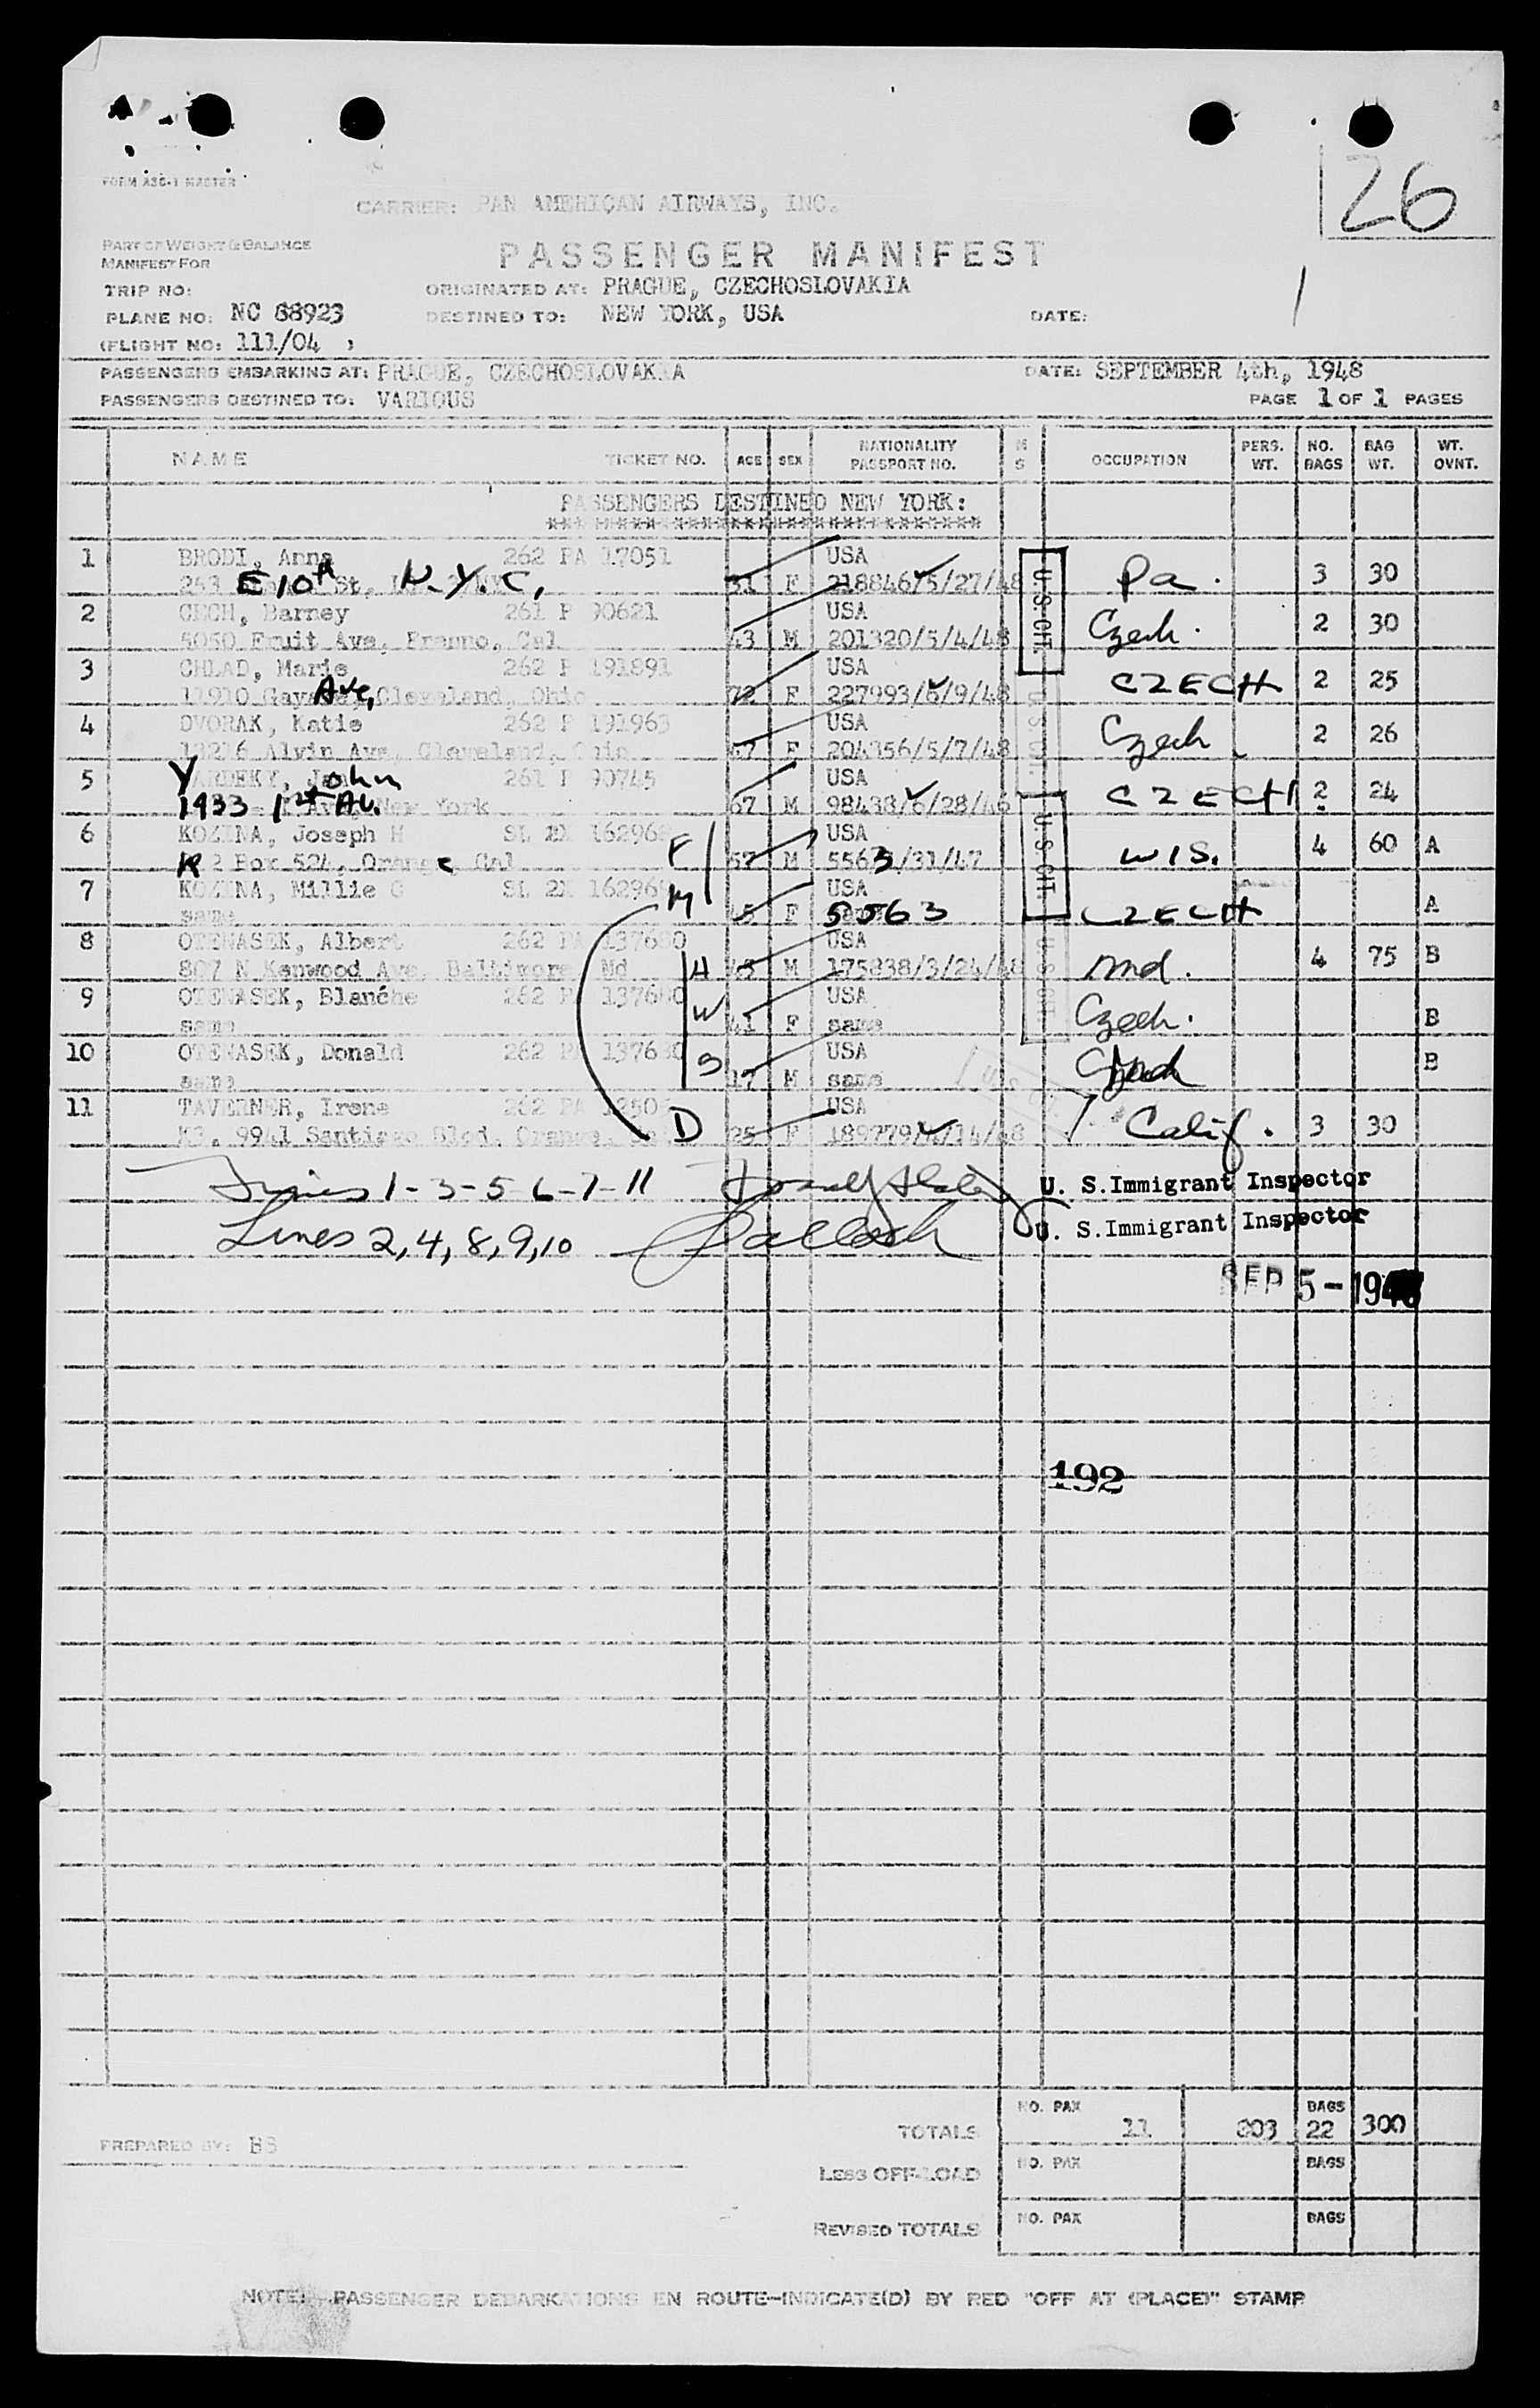 FORM ASC-1 MASTER
26
CARRIER: PAN AMERICAN AIRWAYS, INC.
PART OF WEIGHT & BALANCE
MANIFEST FOR
PASSENGER MANIFEST
TRIP NO:
ORIGINATED AT: PRAGUE, CZECHOSLOVAKIA
PLANE NO: NC 88923
DESTINED TO: NEW YORK, USA
DATE:
(FLIGHT NO: 111/04 )
PASSENGERS EMBARKING AT: PRAGUE, CZECHOSLOVAKIA DATE: SEPTEMBER 4th, 1948
PASSENGERS DESTINED TO: VARIOUS PAGE 1 OF 1 PAGES
NAME TICKET NO. AGE SEX NATIONALITY PASSPORT NO. M S OCCUPATION PERS. WT. NO. BAGS BAG WT. WT. OVNT.
PASSENGERS DESTINED NEW YORK:
1 BRODI, Anna 262 PA 17051 USA
243 E 10th St, N.Y.C, 31 F 218846/5/27/48 U.S. CIT. Pa. 3 30
2 CECH, Barney 261 P 90621 USA
5050 Fruit Ave, Fresno, Cal 43 M 201320/5/4/48 Czech. 2 30
3 CHLAD, Marie 262 P 191891 USA
11910 Gay Ave, Cleveland, Ohio 72 F 227993/6/9/48 CZECH 2 25
4 DVORAK, Katie 262 P 191963 USA
13216 Alvin Ave, Cleveland, Ohio 57 F 204356/5/7/48 Czech 2 26
5 John 261 P 90745 USA
1933 1st Av. New York 67 M 98438/6/28/46 CZECH 2 24
6 KOZINA, Joseph H SL 2X 16296 F USA
R 2 Box 524, Orange Cal 57 M 5563/31/47 U.S. CIT. WIS. 4 60 A
7 KOZINA, Millie G SL 2X 162969 M USA
same F 5563 CZECH A
8 OTENASEK, Albert 262 PA 137680 USA
807 N Kenwood Ave, Baltimore, Md H 45 M 175838/3/24/48 Md. 4 75 B
9 OTENASEK, Blanche 262 PA 137680 USA
same W 41 F same Czech. B
10 OTENASEK, Donald 262 PA 137680 USA
same S 17 M same B
11 TAVERNER, Irene 262 PA USA
9941 Santiago Blvd, Orange, D 25 F 189779/4/14/48 Calif. 3 30
Lines 1-3-5 6-7-11 U. S. Immigrant Inspector
Lines 2, 4, 8, 9, 10 U. S. Immigrant Inspector
SEP 5 - 1948
192
NO. PAX BAGS
TOTALS 11 803 22 300
PREPARED BY: BS
NO. PAX BAGS
LESS OFF-LOAD
NO. PAX BAGS
REVISED TOTALS
NOTE: PASSENGER DEBARKATIONS EN ROUTE-INDICATE(D) BY RED "OFF AT (PLACE)" STAMP